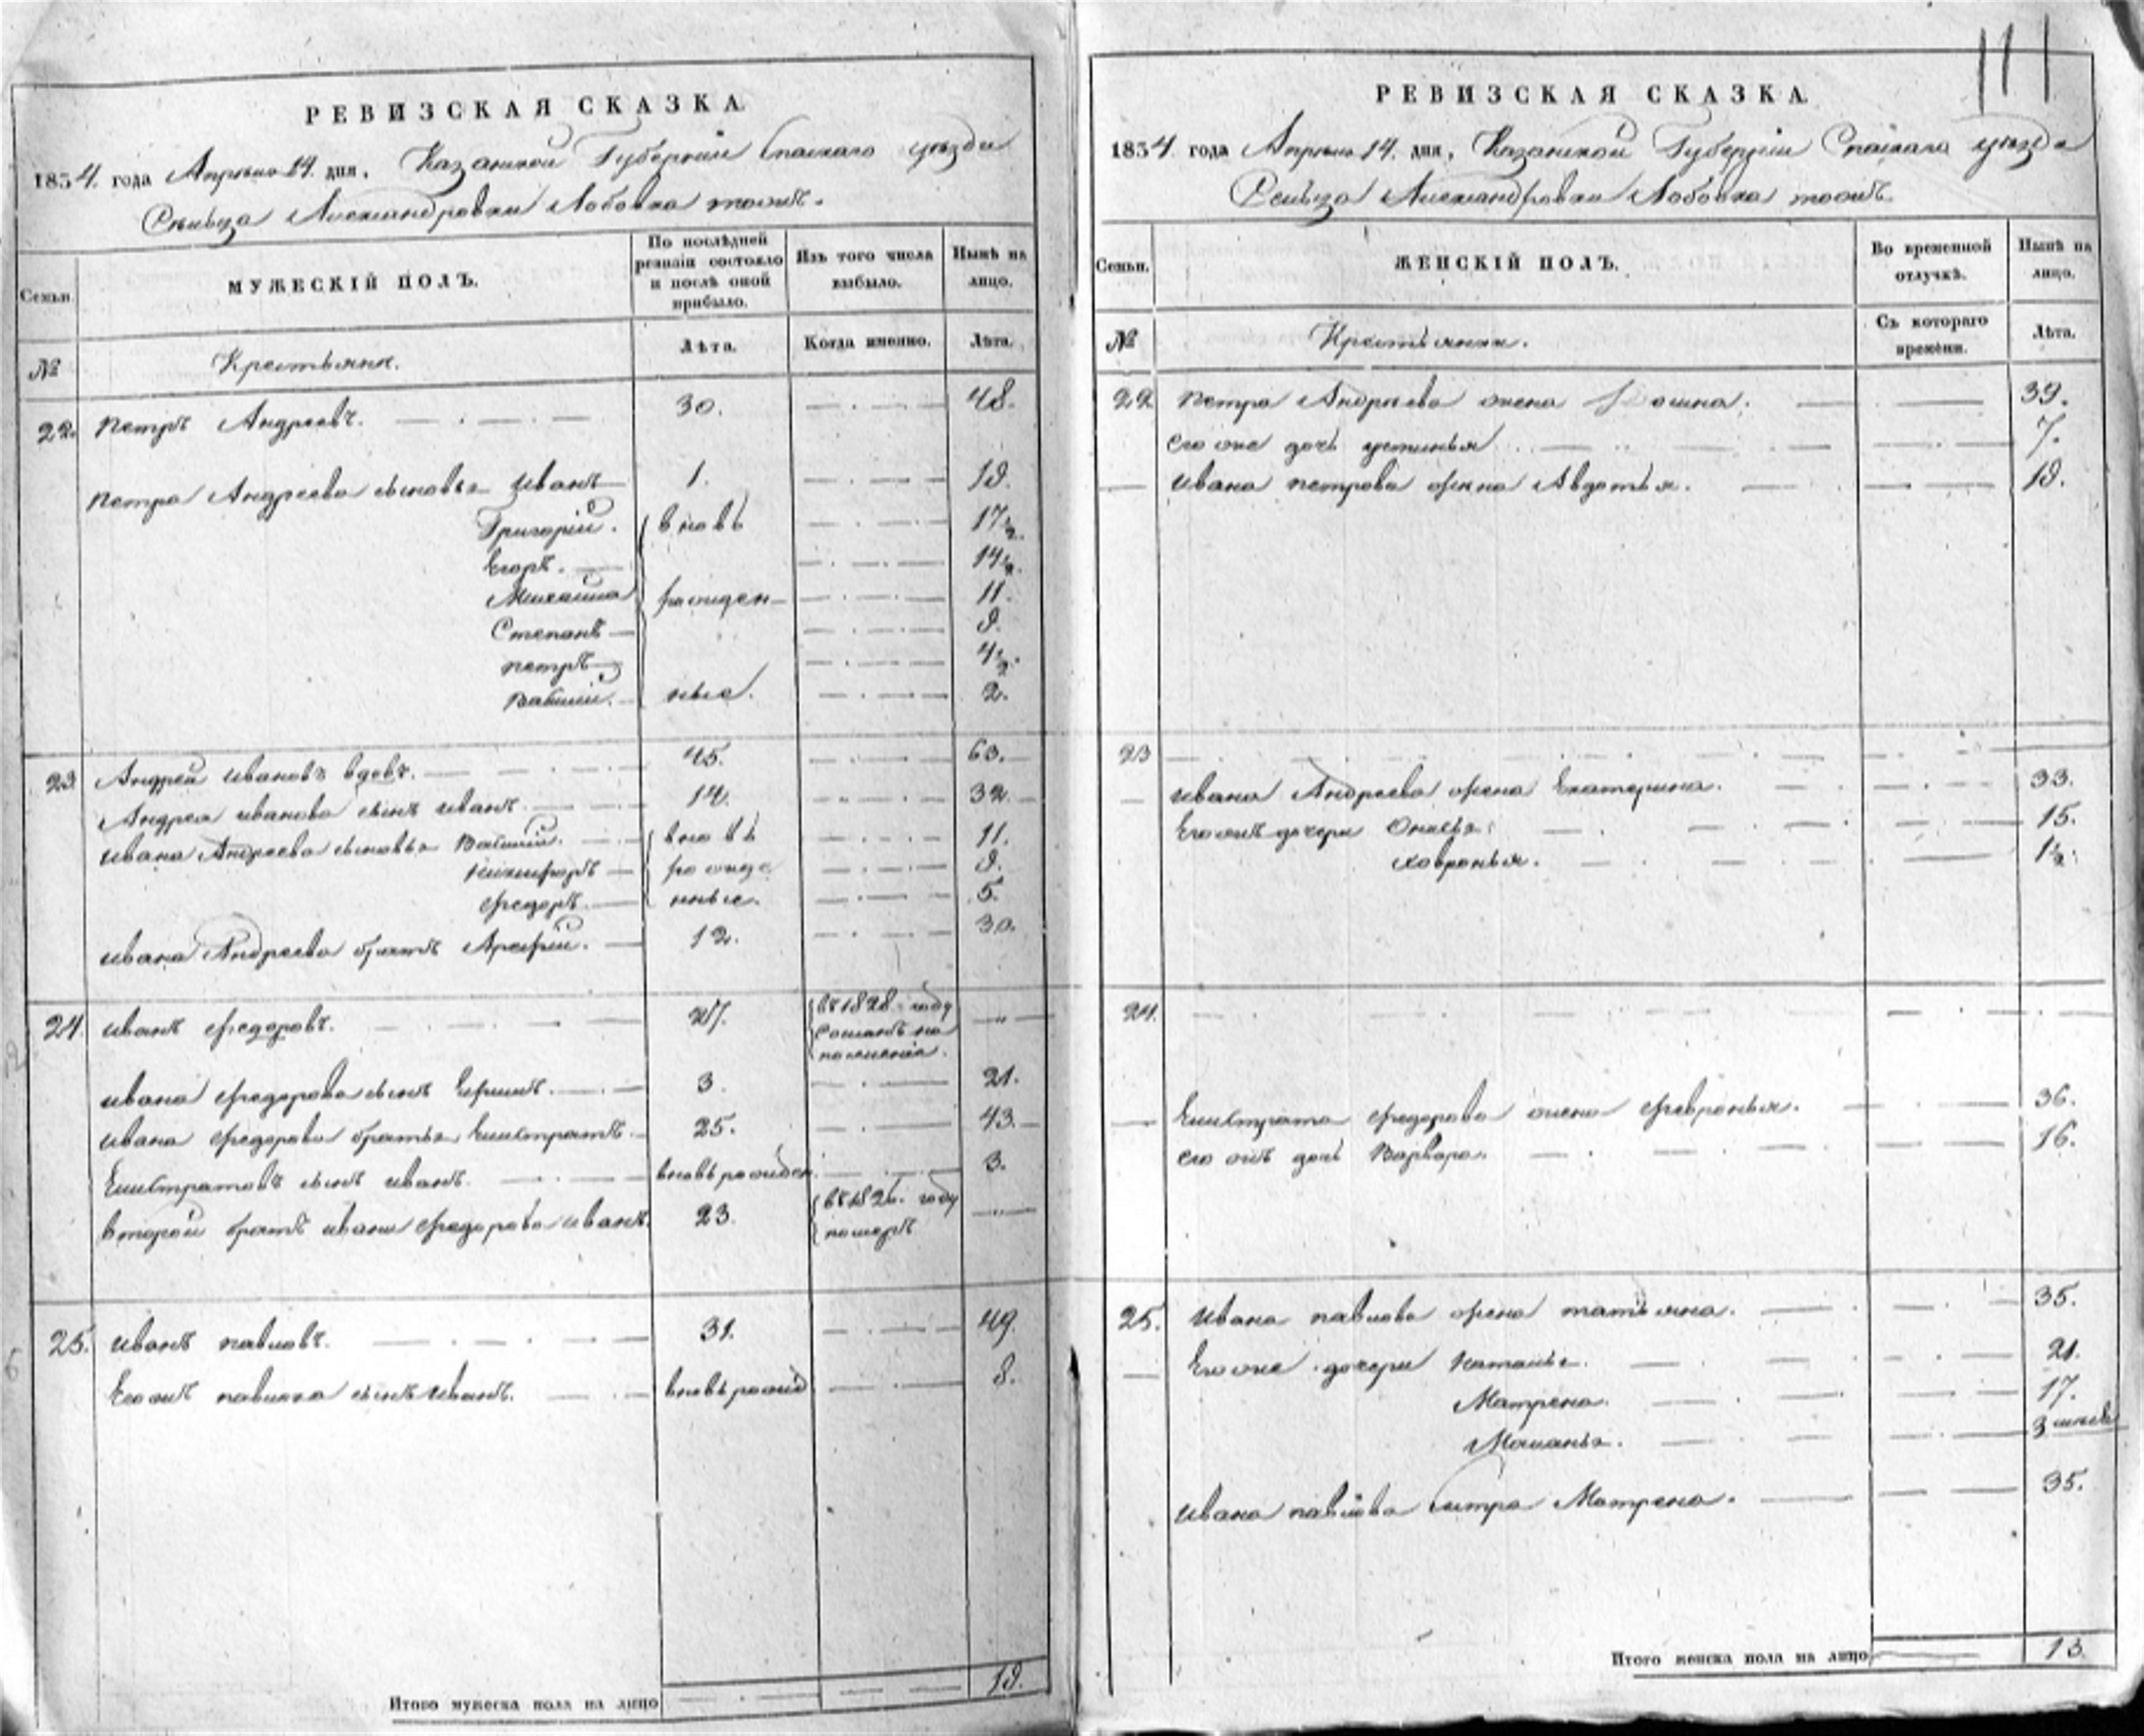 РЕВИЗСКАЯ СКАЗКА
1834. года Апреля 14. дня, Казанской Губернии Спаскаго уезда
Сельца Александровки Лобовка тожъ.
Семьи.
МУЖЕСКІЙ ПОЛЪ.
По послѣдней ревизіи состояло и послѣ оной прибыло.
Изъ того числа выбыло.
Нынѣ на лицо.
№
Крестьяне.
Лѣта.
Когда именно.
Лѣта.
22. Петръ Андреевъ. 30. 48.
Петра Андреева сыновья Иванъ 1. 19.
Григорій. вновь 17 1/2.
Егоръ. 14 1/2.
Михайла рожден- 11.
Степанъ 9.
Петръ 4 1/2.
Василій. ные. 2.
23. Андрей Ивановъ вдовъ. 45. 63.
Андрея Иванова сынъ Иванъ. 14. 32.
Ивана Андреева сыновья Василій. вновь 11.
Никифоръ рожде 9.
Федоръ нные. 5.
Ивана Андреева братъ Арефій. 12. 30.
24. Иванъ Федоровъ. 27. въ 1828. году
сосланъ на
поселение.
Ивана Федорова сынъ Ефимъ. 3. 21.
Ивана Федорова братья Елистратъ. 25. 43.
Елистратовъ сынъ Иванъ. вновь рожден. 3.
Второй братъ Ивана Федорова Иванъ. 23. въ 1826. году
померъ
25. Иванъ Павловъ. 31. 49.
Егожъ Павлова сынъ Иванъ. вновь рожд 8.
Итого мужеска пола на лицо 19.
111
РЕВИЗСКАЯ СКАЗКА
1834. года Апреля 14. дня, Казанской Губернии Спаскаго уезда
Сельца Александровки Лобовка тожъ
Семьи.
ЖЕНСКІЙ ПОЛЪ.
Во временной отлучкѣ.
Нынѣ на лицо.
№
Крестьянки.
Съ котораго времени.
Лѣта.
22 Петра Андреева жена 39.
его же дочь Устинья 7.
Ивана Петрова жена Авдотья. 19.
23
Ивана Андреева жена Екатерина. 33.
Егожъ дочери 15.
Ховронья. 1 1/2.
24.
Елистрата Федорова жена Февронья. 36.
его жъ дочь Варвара. 16.
25. Ивана Павлова жена Татьяна. 35.
Его же дочери Наталья. 21.
Матрена. 17.
Маланья. 3 
Ивана Павлова сестра Матрена. 35.
Итого женска пола на лицо 13.